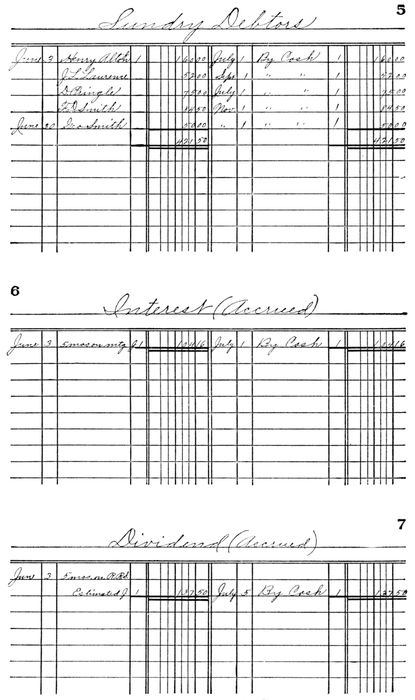 5
Sundry Debtors
June 3 Henry Altch 1 160 00 July 1 By Cash 1 160 00
J. L. Laurence 52 00 Sep 1 " " 1 52 00
D. Pringle 75 00 July 1 " " 1 75 00
F. D. Smith 84 50 Nov. 1 " " 1 84 50
June 30 Geo Smith 50 00 " 1 " " 1 50 00
421 50 421 50
6
Interest (Accrued)
June 3 5 mos on mtg J 1 104 16 July 1 By Cash 1 104 16
7
Dividend (Accrued)
June 3 5 mos on R.R.
Estimated J 1 137 50 July 5 By Cash 1 137 50